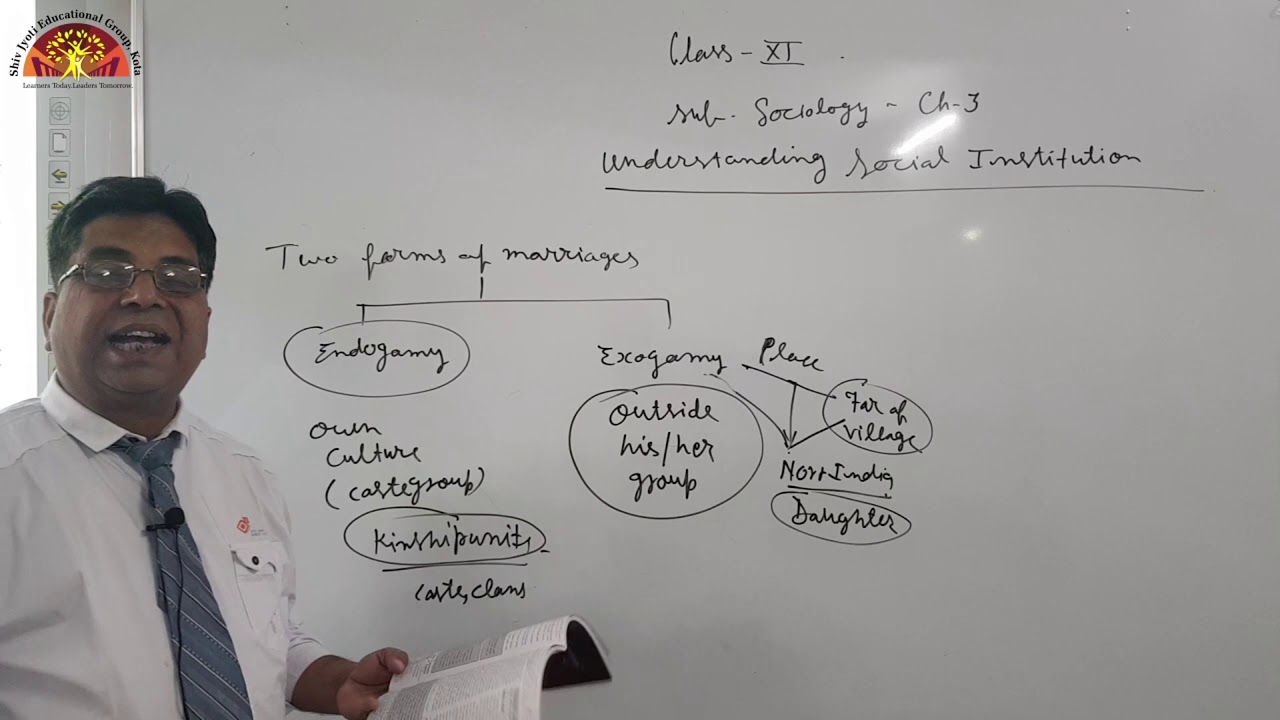 Shiv Jyoti Educational Group, Kota
Learners Today.Leaders Tomorrow.
Class - XI
Sub. Sociology - Ch-3
Understanding Social Institution
Two forms of marriages
Endogamy
own
culture
(castegroup)
Kinshipunit
caste, clans
Exogamy
outside
his/her
group
Place
Far of
village
North India
Daughter